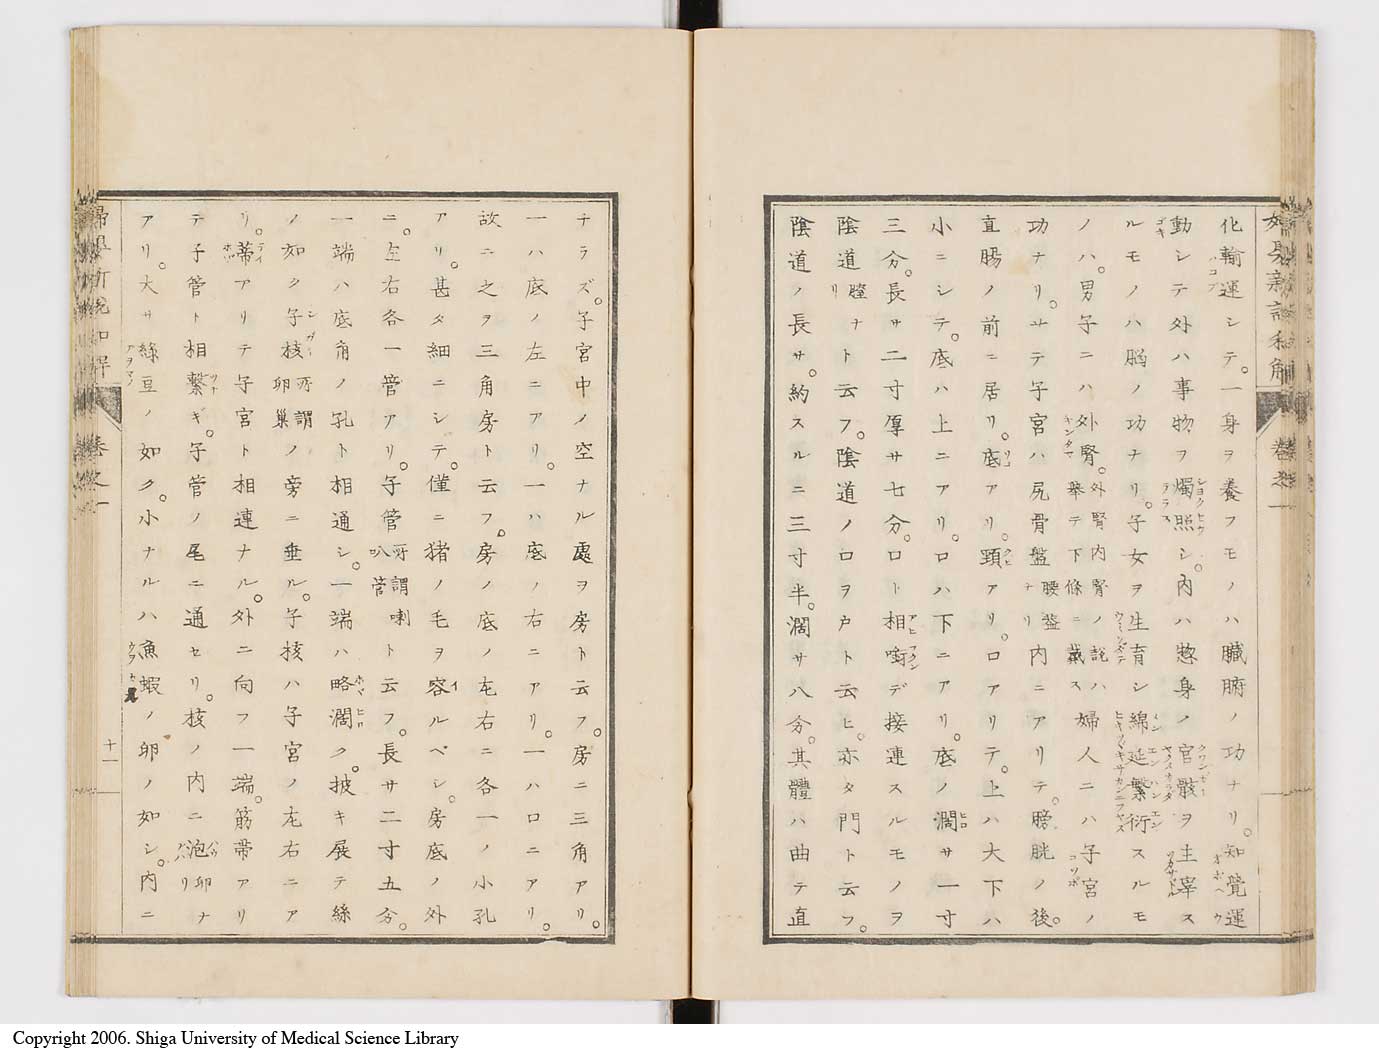 化輸運シテ。一身ヲ養フモノハ臓腑ノ功ナリ。知覺運
動シテ外ハ事物ヲ燭照シ。内ハ惣身ノ官骸ヲ主宰ス
ルモノハ脳ノ功ナリ。子女ヲ生育シ綿延繁衍スルモ
ノハ。男子ニハ外腎。外腎内腎ノ説ハ擧テ下條ニ載ス婦人ニハ子宮ノ
功ナリ。サテ子宮ハ尻骨盤腰盤ナリ内ニアリテ。膀胱ノ後。
直腸ノ前ニ居リ。底アリ。頸アリ。口アリテ。上ハ大下ハ
小ニシテ。底ハ上ニアリ。口ハ下ニアリ。底ノ濶サ一寸
三分。長サ二寸厚サ七分。口ト相啣デ接連スルモノヲ
陰道膣ナリト云フ。陰道ノ口ヲ戸ト云ヒ。亦タ門ト云フ。
陰道ノ長サ。約スルニ三寸半。濶サ八分。其體ハ曲テ直
ナラズ。子宮中ノ空ナル處ヲ房ト云フ。房ニ三角アリ。
一ハ底ノ左ニアリ。一ハ底ノ右ニアリ。一ハ口ニアリ。
故ニ之ヲ三角房ト云フ。房ノ底ノ左右ニ各一ノ小孔
アリ。甚タ細ニシテ。僅ニ猪ノ毛ヲ容ルベシ。房底ノ外
ニ。左右各一管アリ。子管所謂喇叭管ト云フ。長サ二寸五分。
一端ハ底角ノ孔ト相通シ。一端ハ略濶ク。披キ展テ絲
ノ如ク子核所謂卵巣ノ旁ニ垂ル。子核ハ子宮ノ左右ニア
リ。蒂アリテ子宮ト相連ナル。外ニ向フ一端。筋帯アリ
テ子管ト相繋ギ。子管ノ尾ニ通セリ。核ノ内ニ泡卵ナ
アリ。大サ綠豆ノ如ク。小ナルハ魚蝦ノ卵ノ如シ。内ニ
卷之一
十一
Copyright 2006. Shiga University of Medical Science Library